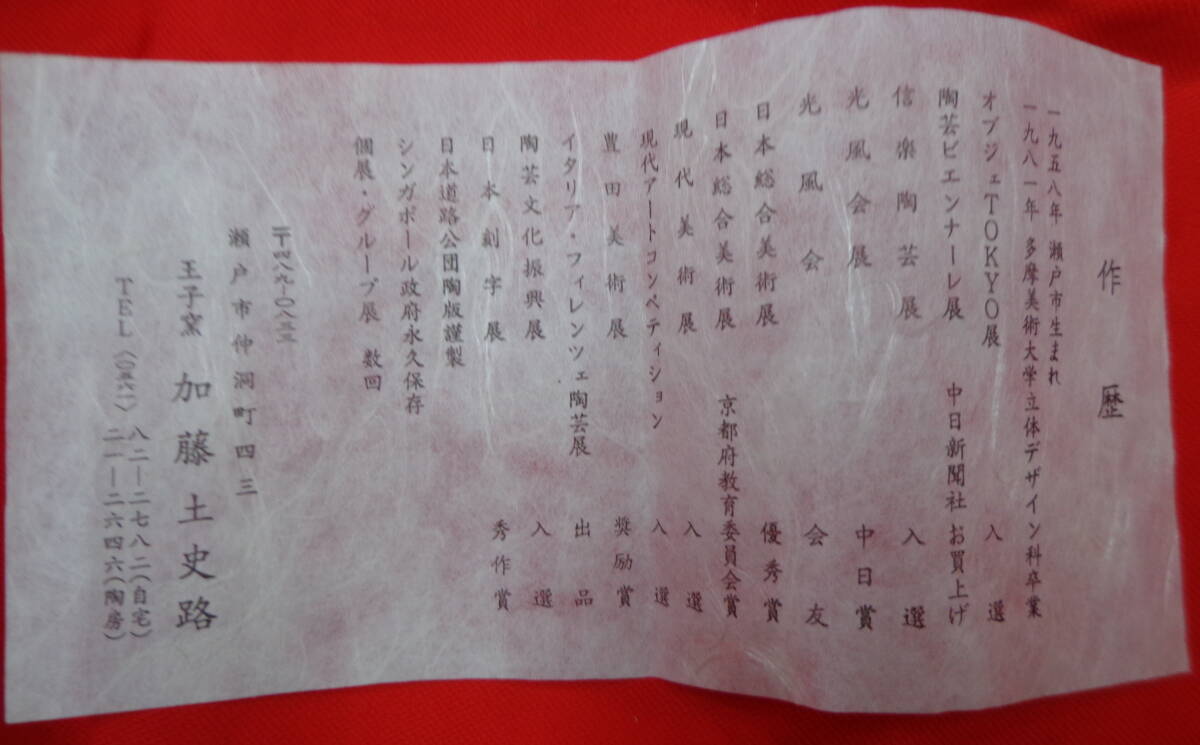 作歴
一九五八年 瀬戸市生まれ
一九八一年 多摩美術大学立体デザイン科卒業
オブジェTOKYO展 入選
陶芸ビエンナーレ展 中日新聞社お買上げ
信楽陶芸展 入選
光風会展 中日賞
光風会 会友
日本総合美術展 優秀賞
日本総合美術展 京都府教育委員会賞
現代美術展 入選
現代アートコンペティション 入選
豊田美術展 奨励賞
イタリア・フィレンツェ陶芸展 出品
陶芸文化振興展 入選
日本刻字展 秀作賞
日本道路公団陶版謹製
シンガポール政府永久保存
個展・グループ展 数回
〒四八九-〇八三三
瀬戸市仲洞町四三
王子窯 加藤土史路
TEL〈〇五六一〉八二―二七八二(自宅)
二一―二六四六(陶房)